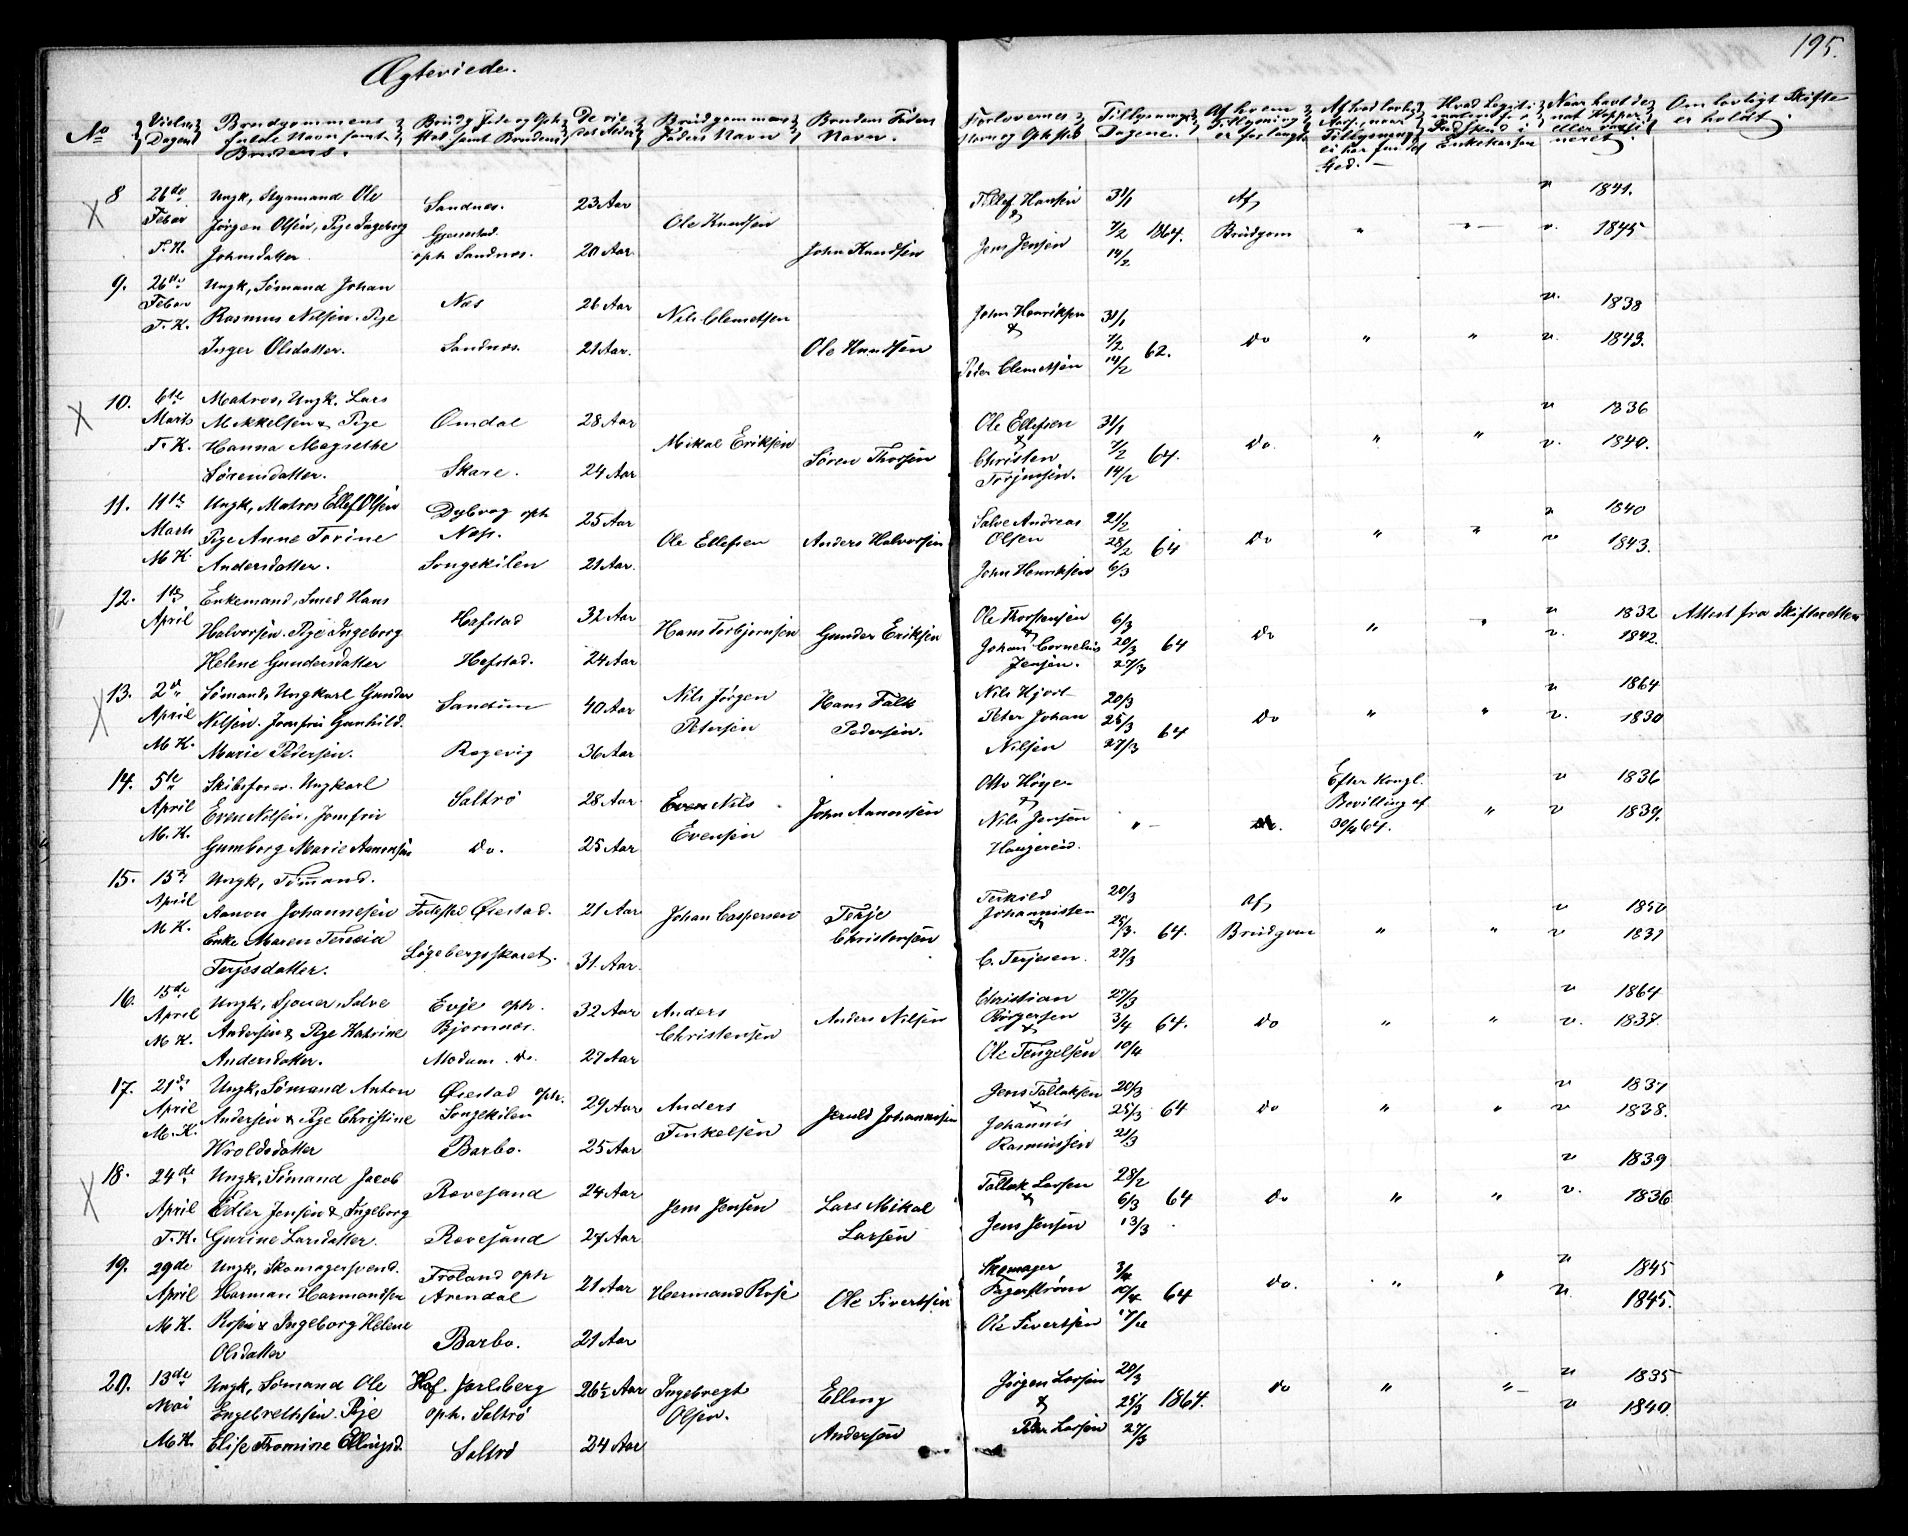 195.
Ægteviede.
No Vielses Dagen Brudgommens fulde Navn samt Brudens. Brudg. Føde og Oph. Sted samt Brudens De vie- des Alder Brudgommens Faders Navn Brudens Faders Navn. Forlovernes Navn og Opholdst. Tillysnings Dagene. Af hvem Tillysning er forlangt Om lovligt Skifte er holdt.
8 26de Febar F. K. Ungk, Styrmand Ole Jørgen Olsen, Pige Ingeborg Johnsdatter.
Sandnes. Gjerestad. oph Sandnes.
23 Aar 20 Aar
Ole Knudsen John Knudsen
Tellef Hansen & Jens Jensen
31/1 7/2 1864. 14/2
Af Brudgom " " v. 1841. v. 1845
9. 26de Febar F. K. Ungk, Sømand Johan Rasmus Nilsen. Pige Inger Olsdatter.
Næs Sandnæs.
26 Aar 21 Aar.
Nils Clemetsen Ole Knudsen
John Henriksen & Peder Clemetsen
31/1 7/2 62. 14/2
Do " " v. 1838 v. 1843.
10. 6te Marts F. K. Matros, Ungk. Lars Mikkelsen & Pige Hanna Magrethe Sørensdatter.
Omdal Skare.
28 Aar 24 Aar
Mikal Eriksen Søren Thorsen
Ole Ellefsen & Christen Torjussen.
31/1 7/2 64. 14/2
Do. " " v 1836 v. 1840.
11. 11te Marts M. K. Ungk, Matros Ellef Olsen Pige Anne Torine Andersdatter.
Dybvog oph Næss. Songekilen
25 Aar 21 Aar.
Ole Ellefsen Anders Halvorsen
Salve Andreas Olsen John Henriksen
21/2 28/2 64 6/3
Do " " v 1840 v 1843.
12. 1ste April Enkemand, Smed Hans Halvorsen. Pige Ingeborg Helene Gundersdatter
Hafstad Hafstad.
32 Aar 24 Aar
Hans Torbjørnsen Gunder Eriksen
Ole Thorsensen & Johan Cornelius Jensen.
6/3 20/3 64 27/3
Do " " v 1832 v. 1842. Attest fra Skifteretten
13. 2de April M. K. Sømand, Ungkarl Gunder Nilsen. Jomfru Gunhild Marie Pedersen.
Sandum Rægevig
40 Aar 36 Aar
Nils Jørgen Petersen Hans Falk Pedersen.
Nils Hjort Peter Johan Nilsen
20/3 25/3 64 27/3
Do " " v 1864 v. 1830
14. 5te April M. K. Skibsfører. Ungkarl Even Nilsen, Jomfru Gumborg Marie Aanonsen
Saltrø Do.
28 Aar 25 Aar
Even Nils Evensen John Aanonsen
Otto Høye & Nils Jensen Haugerud.
" Do. Efter Kongl. Bevilling af 30/4 64. " v 1836 v 1839.
15. 15de April M. K. Ungk, Sømand. Aanon Johannesen Enke Maren Teresia Terjesdatter.
Fødested Øiestad. Løgebergsskaret.
21 Aar 31 Aar.
Johan Caspersen Terje Christensen
Terkild Johannissen & C. Terjesen
20/3 25/3. 64. 27/3
Af Brudgom " " v 1850 v 1831
16. 15de April M. K. Ungk, Sjouer, Salve Andersen & Pige Katrine Andersdatter.
Evje oph. Bjornnæs. Modum. Do.
32 Aar 27 Aar
Anders Christensen Anders Nilsen
Christian Børgersen & Ole Tengelsen
27/3 3/4 64. 10/4
Do " " v 1864 v. 1837.
17. 21de April M. K. Ungk, Sømand Anton Andersen & Pige Christine Wroldsdatter
Øiestad oph. Songekilen Barbo.
29 Aar 25 Aar
Anders Finkelsen Jeruld Johannesen
Jens Tallaksen & Johannis Rasmussen
20/3 25/3 64 21/3
Do " " v 1837 v 1838.
18. 24de April F. K. Ungk, Sømand Jacob Edler Jensen & Ingeborg Gurine Larsdatter.
Rævesand Rævesand
24 Aar 27 Aar
Jens Jensen Lars Mikal Larsen
Tallak Larsen & Jens Jensen
28/2 6/3 64 13/3
Do " " v 1839 v. 1836
19. 29de April M. K. Ungk, Skomagersvend. Harman Harmandsen Rosie & Ingeborg Helene Olsdatter
Froland oph Arendal Barbo.
21 Aar 21 Aar
Hermand Rose Ole Sivertsen
Skomager Fagerstrøm Ole Sivertsen
3/4 10/4 64 17/4
Do. " " v 1845 v. 1845.
20. 13de Mai M. K. Ungk, Sømand Ole Engebrethsen. Pige Elise Tromine Ellingsd.
Haf. Jarlsberg oph. Saltrø Saltrø
26½ Aar 24 Aar
Ingebregt Olsen. Elling Andersen
Jørgen Larsen & Peder Larsen
20/3 25/3 1864. 27/3
Do " " v 1835 v 1840.